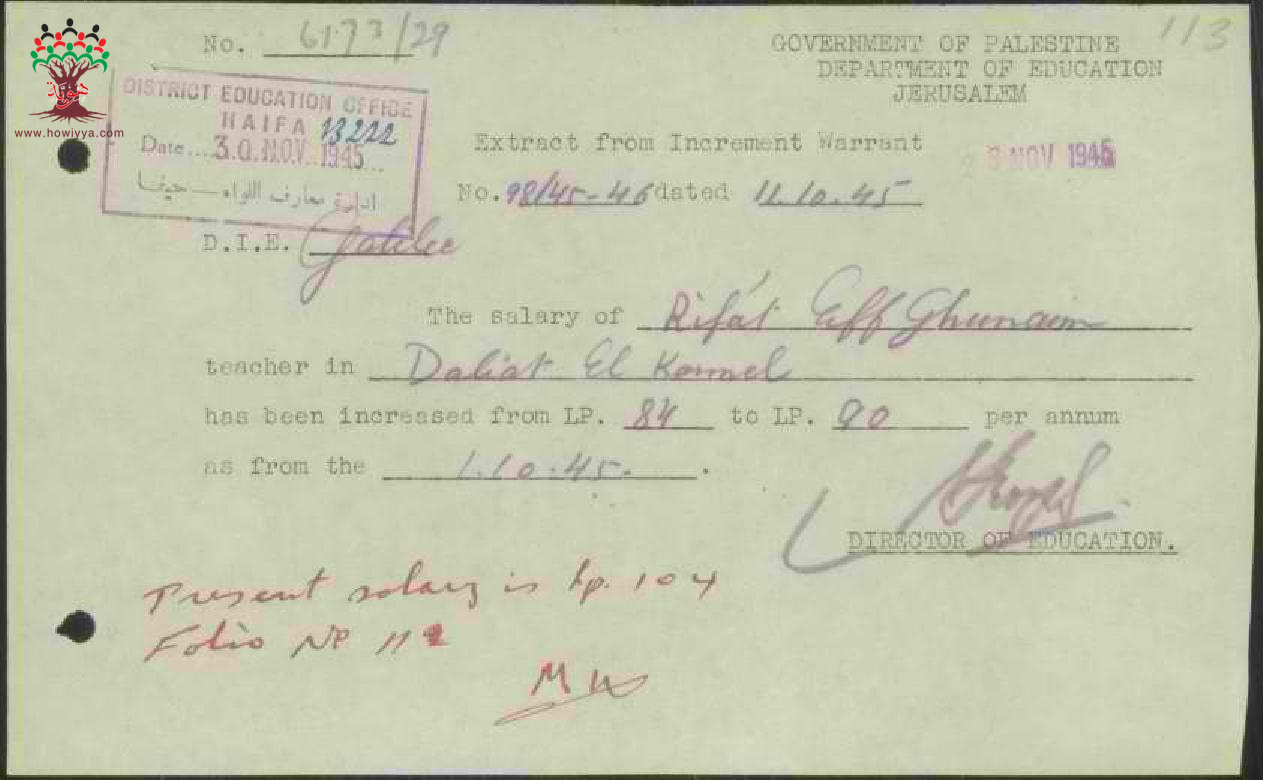 113
No. 6173/29
GOVERNMENT OF PALESTINE
DEPARTMENT OF EDUCATION
JERUSALEM
www.howiyya.com
DISTRICT EDUCATION OFFICE
HAIFA 13222
Date... 30.NOV.1945...
ادارة معارف اللواء — حيفا
Extract from Increment Warrant
NOV 1945
No. 98/45-46 dated 11.10.45
D.I.E. Galilee
The salary of Rifat Eff Ghunaim
teacher in Daliat El Karmel
has been increased from LP. 84 to LP. 90 per annum
as from the 1.10.45.
DIRECTOR OF EDUCATION.
Present salary is Lp. 104
Folio No 112